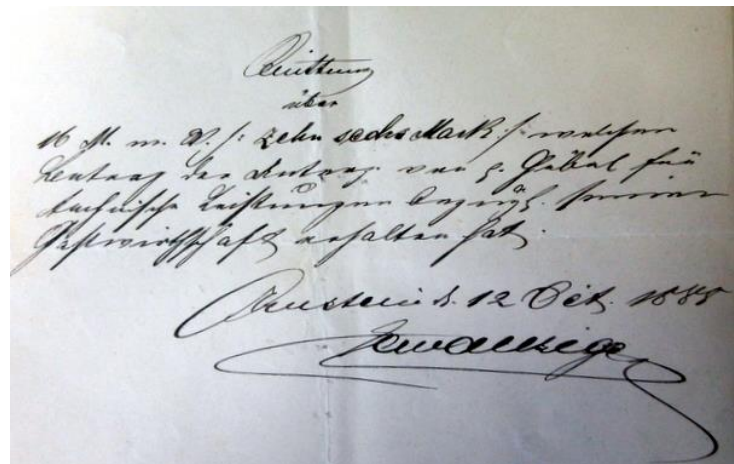 Quittung
über
16 M. m. W. /: zehn sechs Mark :/ welchen
Betrag der Unterz. von H. Göbel für
technische Leistungen bezügl. seiner
Gastwirthschaft erhalten hat.
Arnstein d. 12 Oct. 1885